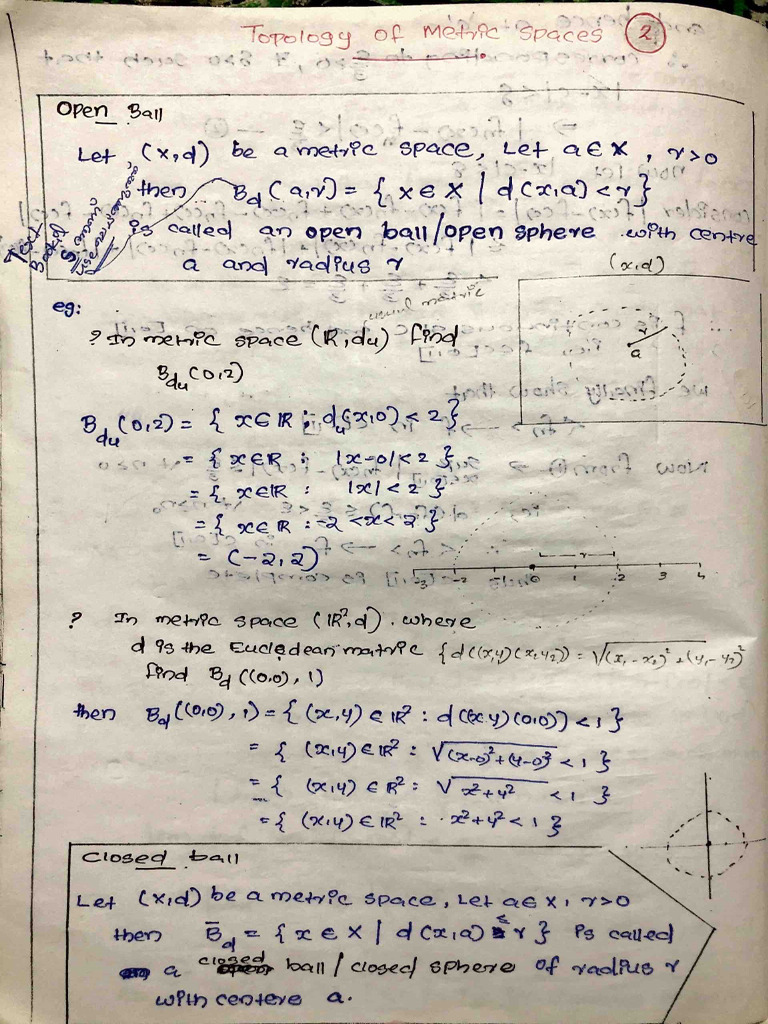 Topology of Metric Spaces 2
Open Ball
Let (X,d) be a metric space, Let a ∈ X, r>0
then B_d(a,r) = { x ∈ X | d(x,a) < r }
is called an open ball/open sphere with centre
a and radius r
Text
Book
(x,d)
r
a
eg:
usual metric
? In metric space (ℝ, du) find
B_du(0,2)
B_du(0,2) = { x ∈ ℝ : du(x,0) < 2 }
= { x ∈ ℝ : |x-0| < 2 }
= { x ∈ ℝ : |x| < 2 }
= { x ∈ ℝ : -2 < x < 2 }
= (-2, 2)
r
-3 -2 -1 0 1 2 3 4
? In metric space (ℝ², d) where
d is the Eucledean matric { d((x,y)(x₂y₂)) = √(x₁-x₂)² + (y₁-y₂)²
find B_d((0,0), 1)
then B_d((0,0), 1) = { (x,y) ∈ ℝ² : d((x,y)(0,0)) < 1 }
= { (x,y) ∈ ℝ² : √(x-0)²+(y-0)² < 1 }
= { (x,y) ∈ ℝ² : √x²+y² < 1 }
= { (x,y) ∈ ℝ² : x²+y² < 1 }
Closed ball
Let (X,d) be a metric space, Let a ∈ X, r>0
then B̄_d = { x ∈ X | d(x,a) ≤ r } is called
a closed ball / closed sphere of radius r
with centere a.